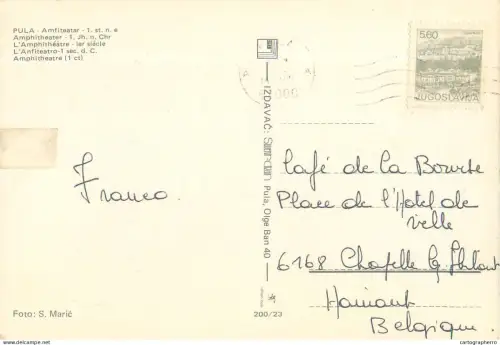 PULA - Amfiteatar - 1. st. n. e
Amphitheater - 1. Jh. n. Chr
L'Amphithéâtre - Ier siècle
L'Anfiteatro - 1 sec. d. C.
Amphitheatre (1 ct)
5.60
JUGOSLAVIJA
IZDAVAČ: Pula, Olge Ban 40
Franco.
Café de la Bourse
Place de l'Hotel de
ville
6168 Chapelle
Hainaut
Belgique.
Foto: S. Marić
200/23
www.delcampe.net
cartographer01